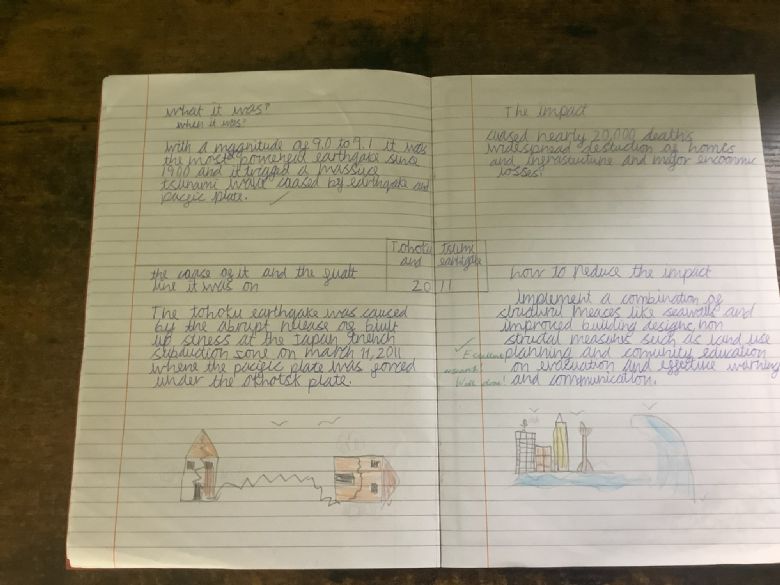 what it was?
when it was?
With a magnitude of 9.0 to 9.1 it was
the most powerful earthqake since
1900 and it trigged a massive
tsunami wave caused by earthqake and
pacific plate.
the cause of it and the fualt
line it was on
The tohoku earthqake was caused
by the abrupt release of built
up stress at the Japan trench
subduction zone on march 11, 2011
where the pacific plate was forced
under the okhotsk plate.
Tohoku
and
earthqake
2011
The impact
caused nearly 20,000 deaths
widespread destuction of homes
and infrastuctune and major enconmic
losses?
how to reduce the impact
Implement a combination of
structural meaces like seawalls and
improved building designs, non
structal measures such as land use
planning and comunity education
on evacuation and effective warning
and communication.
Excellent
Well done!